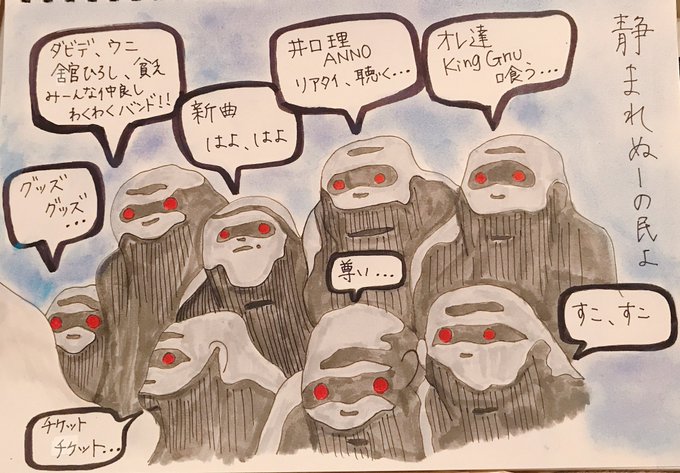 静まれぬーの民よ
オレ達
King Gnu
喰う…
井口理
ANNO
リアタイ、聴く…
新曲
はよ、はよ
ダビデ、ウニ
舘ひろし、
みーんな仲良し
わくわくバンド!!
グッズ
グッズ
…
尊い…
すこ、すこ
チケット
チケット…